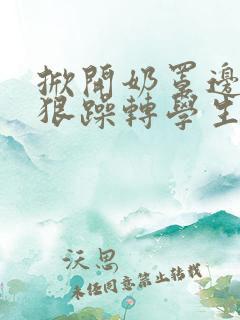 掀開奶罩邊
狠躁轉學生
沃思
未经同意禁止转载